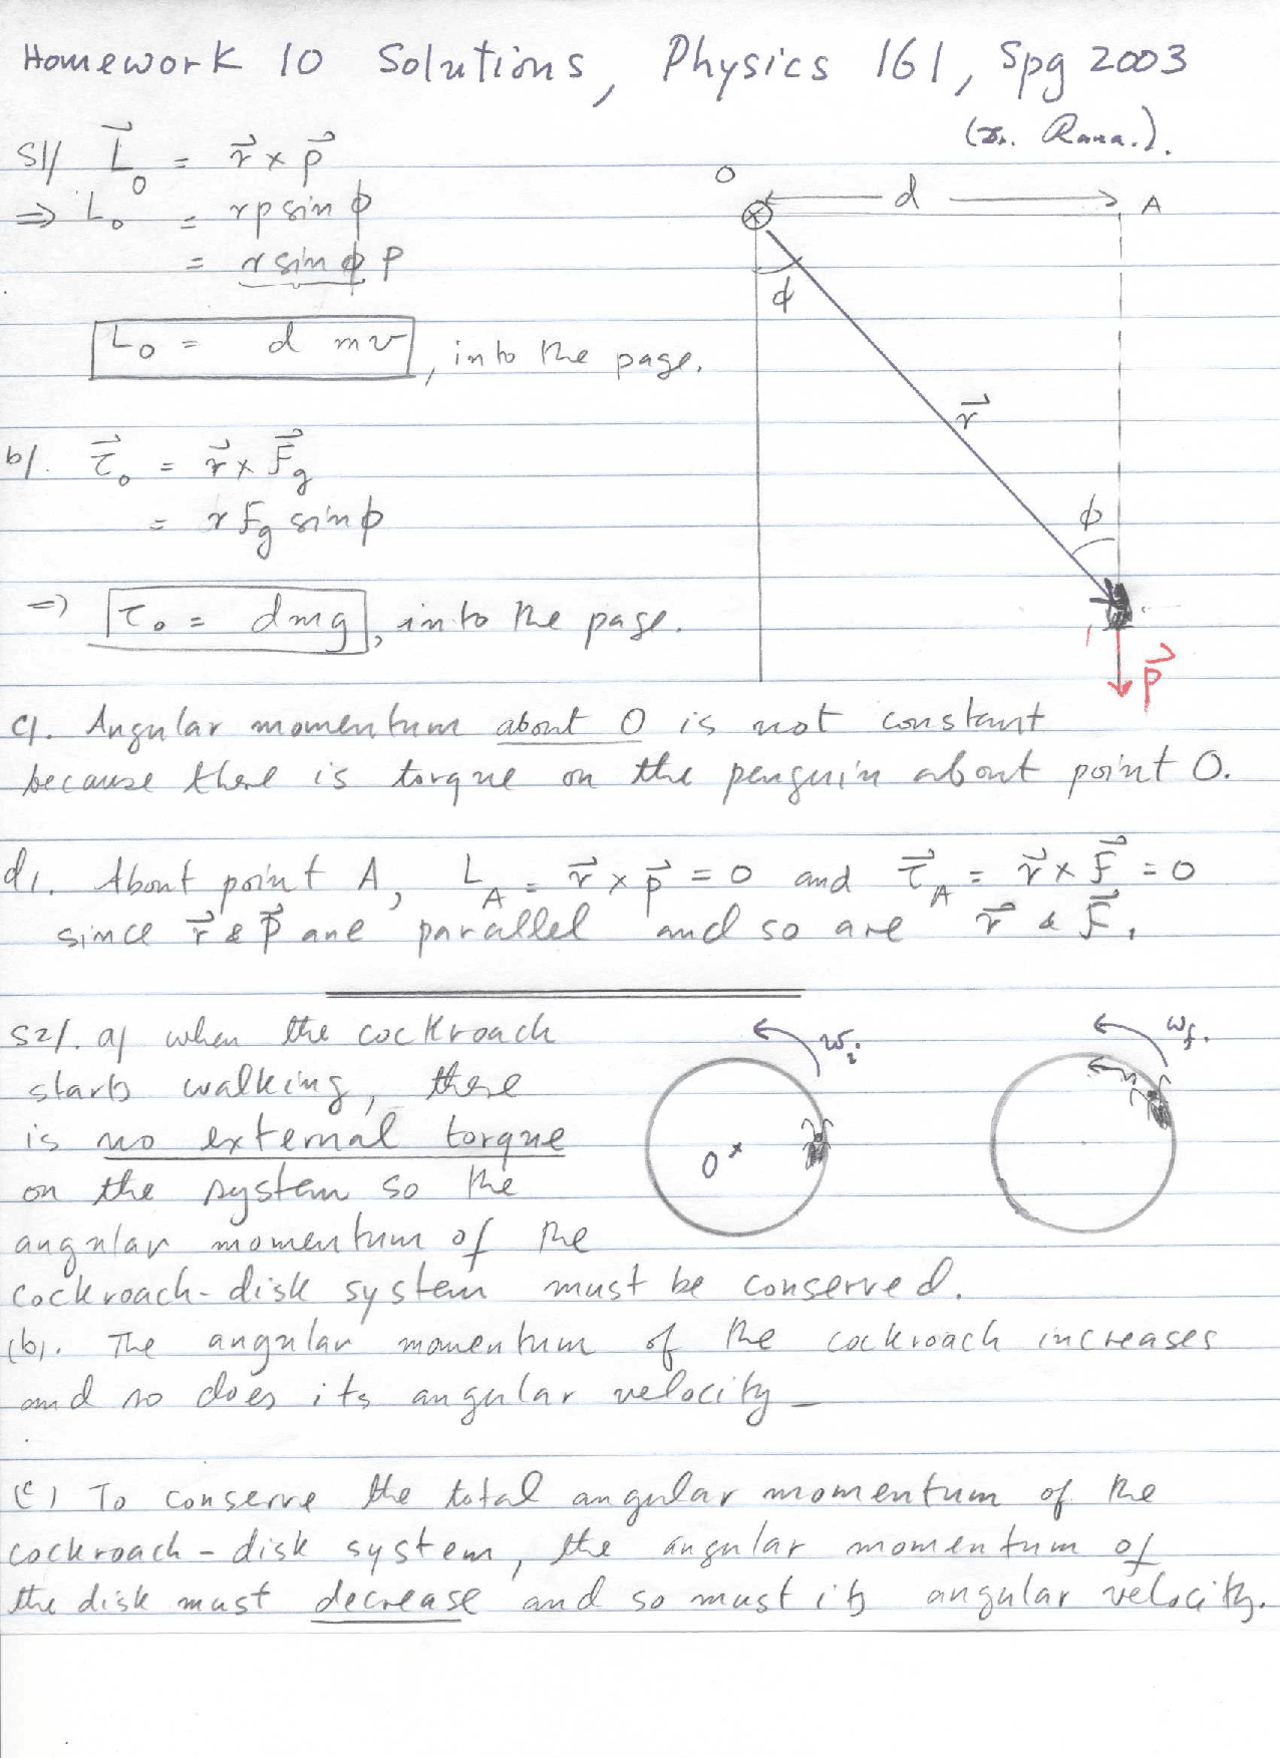 Homework 10 Solutions, Physics 161, Spg 2003
(Dr. Rana.).
S1// L⃗₀ = r⃗ × p⃗
⇒ L₀ = rp sin ϕ
= r sin ϕ p
L₀ = d mv, into the page.
O
d
A
ϕ
r⃗
ϕ
p⃗
b/. τ⃗₀ = r⃗ × F⃗g
= r Fg sin ϕ
⇒ τ₀ = dmg, into the page.
c/. Angular momentum about O is not constant
because there is torque on the penguin about point O.
d/. About point A, L_A = r⃗ × p⃗ = 0 and τ⃗_A = r⃗ × F⃗ = 0
since r⃗ & p⃗ are parallel and so are r⃗ & F⃗.
S2/. a/ when the cockroach
starts walking, there
is no external torque
on the system so the
angular momentum of the
cockroach-disk system must be conserved.
ωi
O ×
ωf.
(b). The angular momentum of the cockroach increases
and so does its angular velocity.
(c) To conserve the total angular momentum of the
cockroach-disk system, the angular momentum of
the disk must decrease and so must its angular velocity.